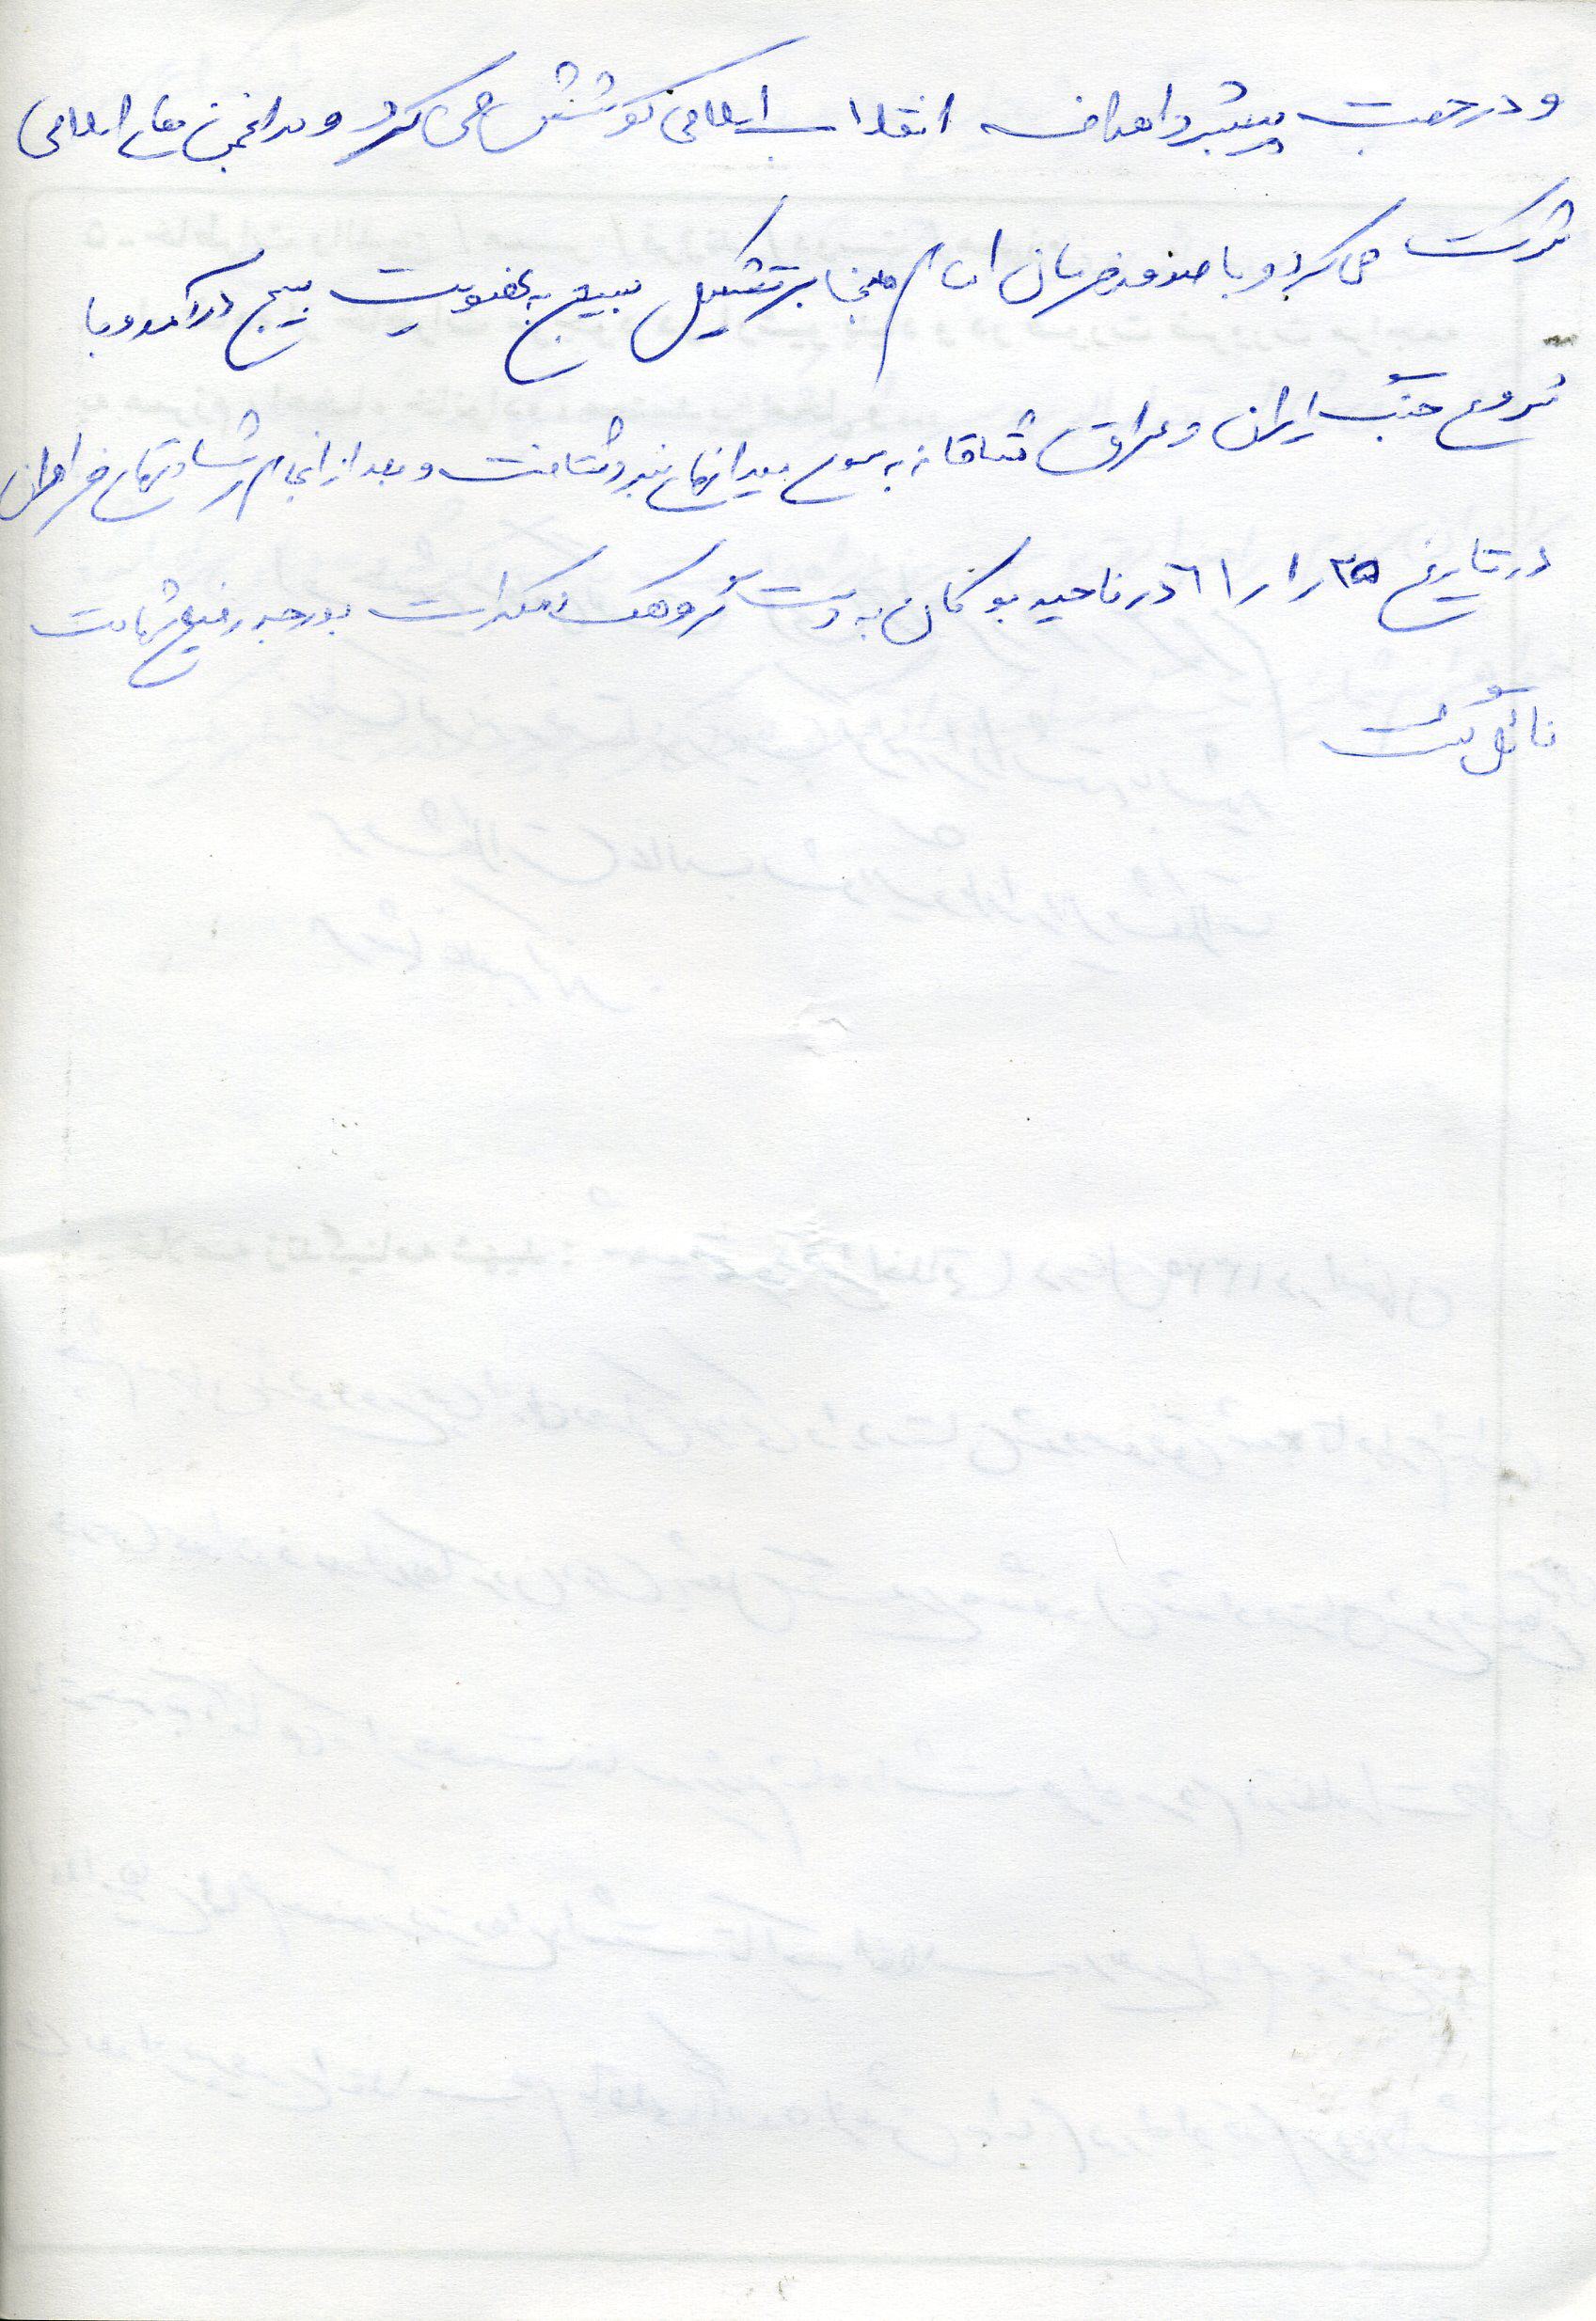 و در جهت پیشبرد اهداف انقلاب اسلامی کوشش می کرد و در انجمن های اسلامی
شرکت می کرد و با صدور فرمان امام مبنی بر تشکیل بسیج به عضویت بسیج درآمد و با
شروع جنگ ایران و عراق مشتاقانه به سوی میدانهای نبرد شتافت و بعد از انجام رشادتهای فراوان
در تاریخ ۶۱/۱/۲۵ در ناحیه بوکان به دست گروهک دمکرات به درجه رفیع شهادت
نائل گشت